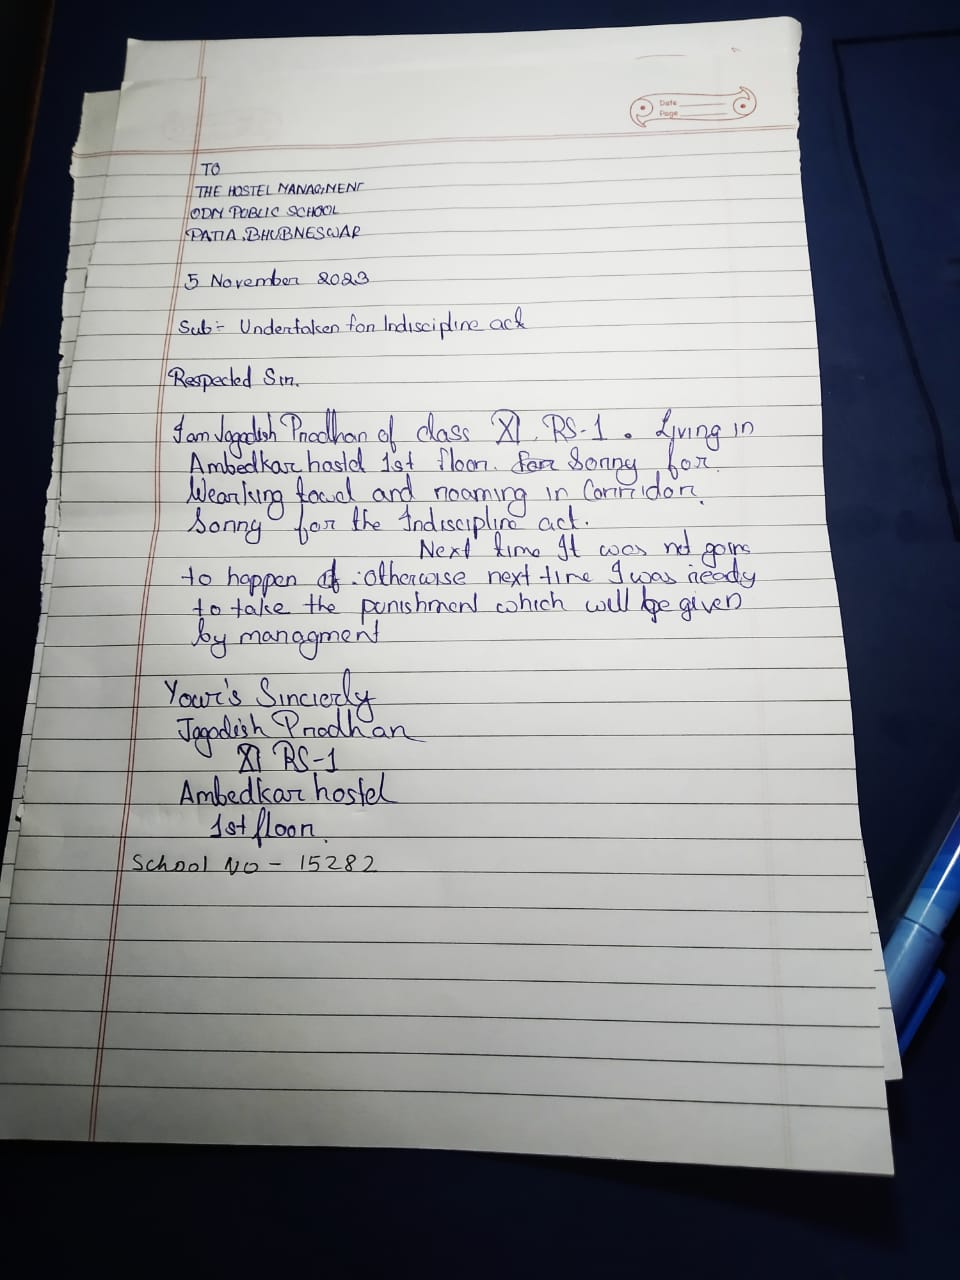 Date
Page
TO
THE HOSTEL MANAGMENT
ODM PUBLIC SCHOOL
PATIA, BHUBNESWAR
5 November 2023
Sub:- Undertaken for Indiscipline act
Respected Sir.
I am Jagadish Pradhan of class XI. RS-1. Living in
Ambedkar hostel 1st floor. Sorry for
Wearking towel and roaming in Corrridor.
Sorry for the Indiscipline act.
Next time It was not going
to happen otherwise next time I was ready
to take the punishment which will be given
by managment
Your's Sincierly
Jagadish Pradhan
XI RS-1
Ambedkar hostel
1st floor.
School NO - 15282